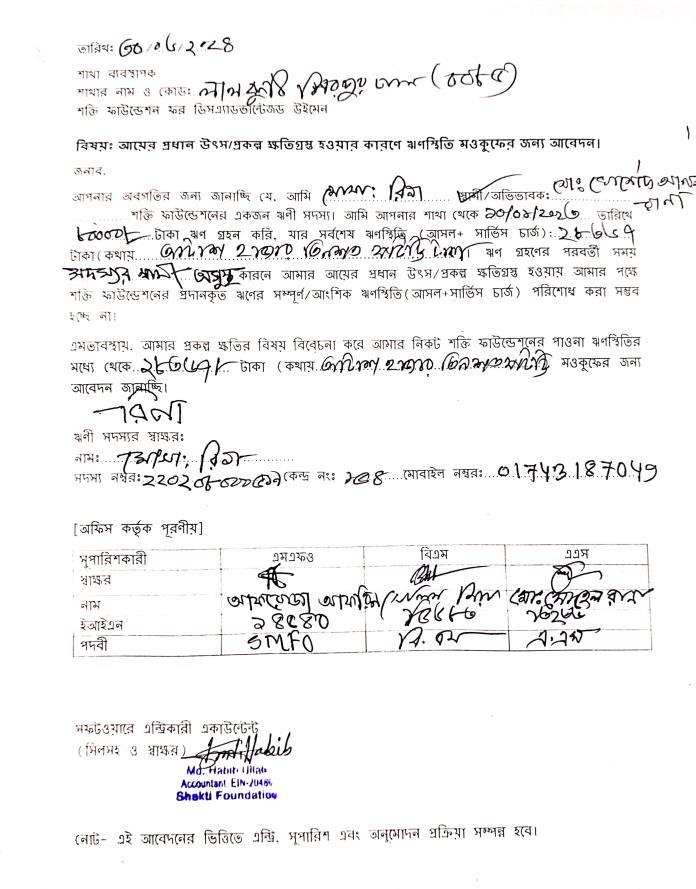 তারিখঃ ৩০/০৬/২০২৪
শাখা ব্যবস্থাপক
শাখার নাম ও কোড: লালকুঠি মিরপুর
শক্তি ফাউন্ডেশন ফর ডিসএ্যাডভান্টেজড উইমেন
বিষয়ঃ আয়ের প্রধান উৎস/প্রকল্প ক্ষতিগ্রস্থ হওয়ার কারণে ঋণস্থিতি মওকুফের জন্য আবেদন।
জনাব,
আপনার অবগতির জন্য জানাচ্ছি যে, আমি মোসা: রিনা স্বামী/অভিভাবক: মোঃ
শক্তি ফাউন্ডেশনের একজন ঋণী সদস্য। আমি আপনার শাখা থেকে তারিখে
৮০০০০/- টাকা ঋণ গ্রহন করি, যার সর্বশেষ ঋণস্থিতি (আসল+ সার্ভিস চার্জ):
টাকা(কথায় আটাশ হাজার তিনশত টাকা। ঋণ গ্রহণের পরবর্তী সময়
সদস্যর স্বামী অসুস্থ কারনে আমার আয়ের প্রধান উৎস/প্রকল্প ক্ষতিগ্রস্থ হওয়ায় আমার পক্ষে
শক্তি ফাউন্ডেশনের প্রদানকৃত ঋণের সম্পূর্ণ/আংশিক ঋণস্থিতি(আসল+সার্ভিস চার্জ) পরিশোধ করা সম্ভব
হচ্ছে না।
এমতাবস্থায়, আমার প্রকল্প ক্ষতির বিষয় বিবেচনা করে আমার নিকট শক্তি ফাউন্ডেশনের পাওনা ঋণস্থিতির
মধ্যে থেকে টাকা (কথায় আটাশ হাজার তিনশত মওকুফের জন্য
আবেদন জানাচ্ছি।
রিনা
ঋণী সদস্যর স্বাক্ষর:
নাম: মোসা: রিনা
সদস্য নম্বর: কেন্দ্র নং: মোবাইল নম্বরঃ 01743187049
[অফিস কর্তৃক পূরণীয়]
সুপারিশকারী এমএফও বিএম এএস
স্বাক্ষর
নাম আফরোজা মিয়া মোঃ সোহেল রানা
ইআইএন
পদবী SMFO বি. এম এ.এস
সফটওয়ারে এন্ট্রিকারী একাউন্টেন্ট
(সিলসহ ও স্বাক্ষর)
Md. Habib Ullah
Accountant EIN-20486
Shakti Foundation
নোট- এই আবেদনের ভিত্তিতে এন্ট্রি, সুপারিশ এবং অনুমোদন প্রক্রিয়া সম্পন্ন হবে।